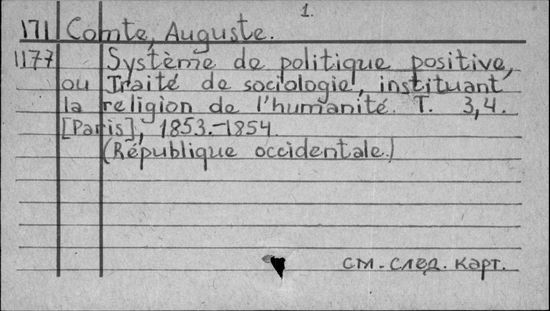 1.
171 Comte, Auguste.
1177 Système de politique positive,
ou Traité de sociologie, instituant
la religion de l'humanité. T. 3,4.
[Paris], 1853.-1854.
(République occidentale.)
см. след. карт.